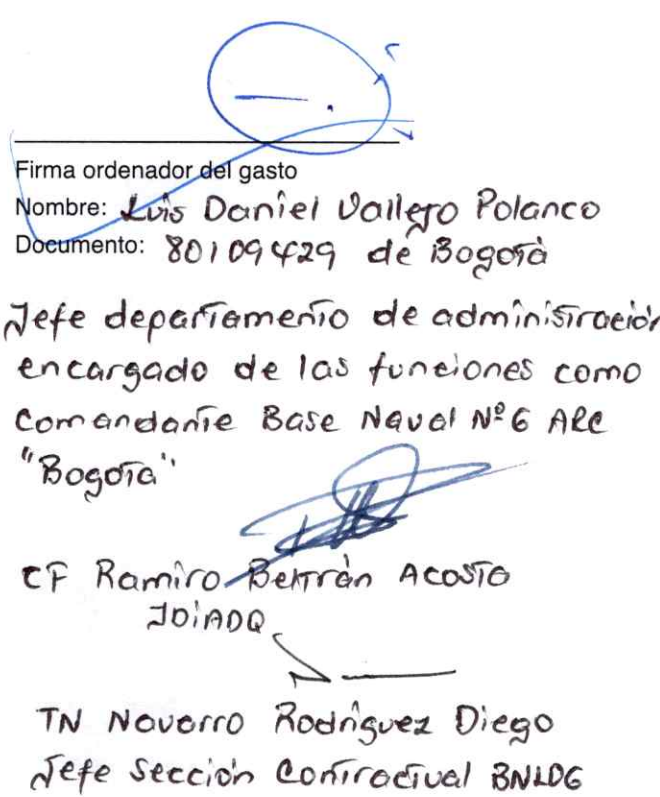 Firma ordenador del gasto
Nombre: Luis Daniel Vallejo Polanco
Documento: 80109429 de Bogotá
Jefe departamento de administración
encargado de las funciones como
Comandante Base Naval Nº6 ARC
"Bogotá"
CF Ramiro Beltrán Acosta
JDIADQ
TN Navarro Rodríguez Diego
Jefe Sección Contractual BNL06